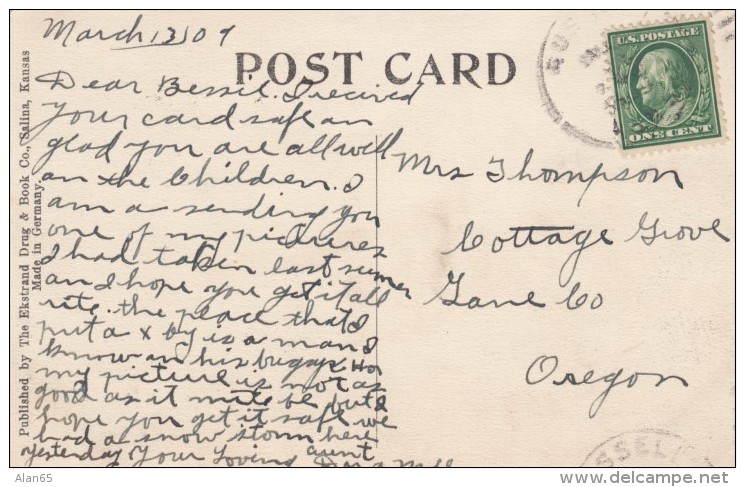 March 13/09
POST CARD
U.S. POSTAGE
ONE CENT
Dear Bessie. I recived
your card safe an
glad you are all well
an the Children. I
am a sending you
one of my pictures
I had taken last sumer
an I hope you get it all
rite. the peace that I
put a x by is a man I
know an his buggy
my picture is not as
good as it mite be but I
hope you get it safe we
had a snow storm here
yesterday Your Loving aunt
Mrs Thompson
Cottage Grove
Lane Co
Oregon
Published by The Ekstrand Drug & Book Co., Salina, Kansas
Made in Germany.
RUS
SSELL
Alan65
© delcampe.net